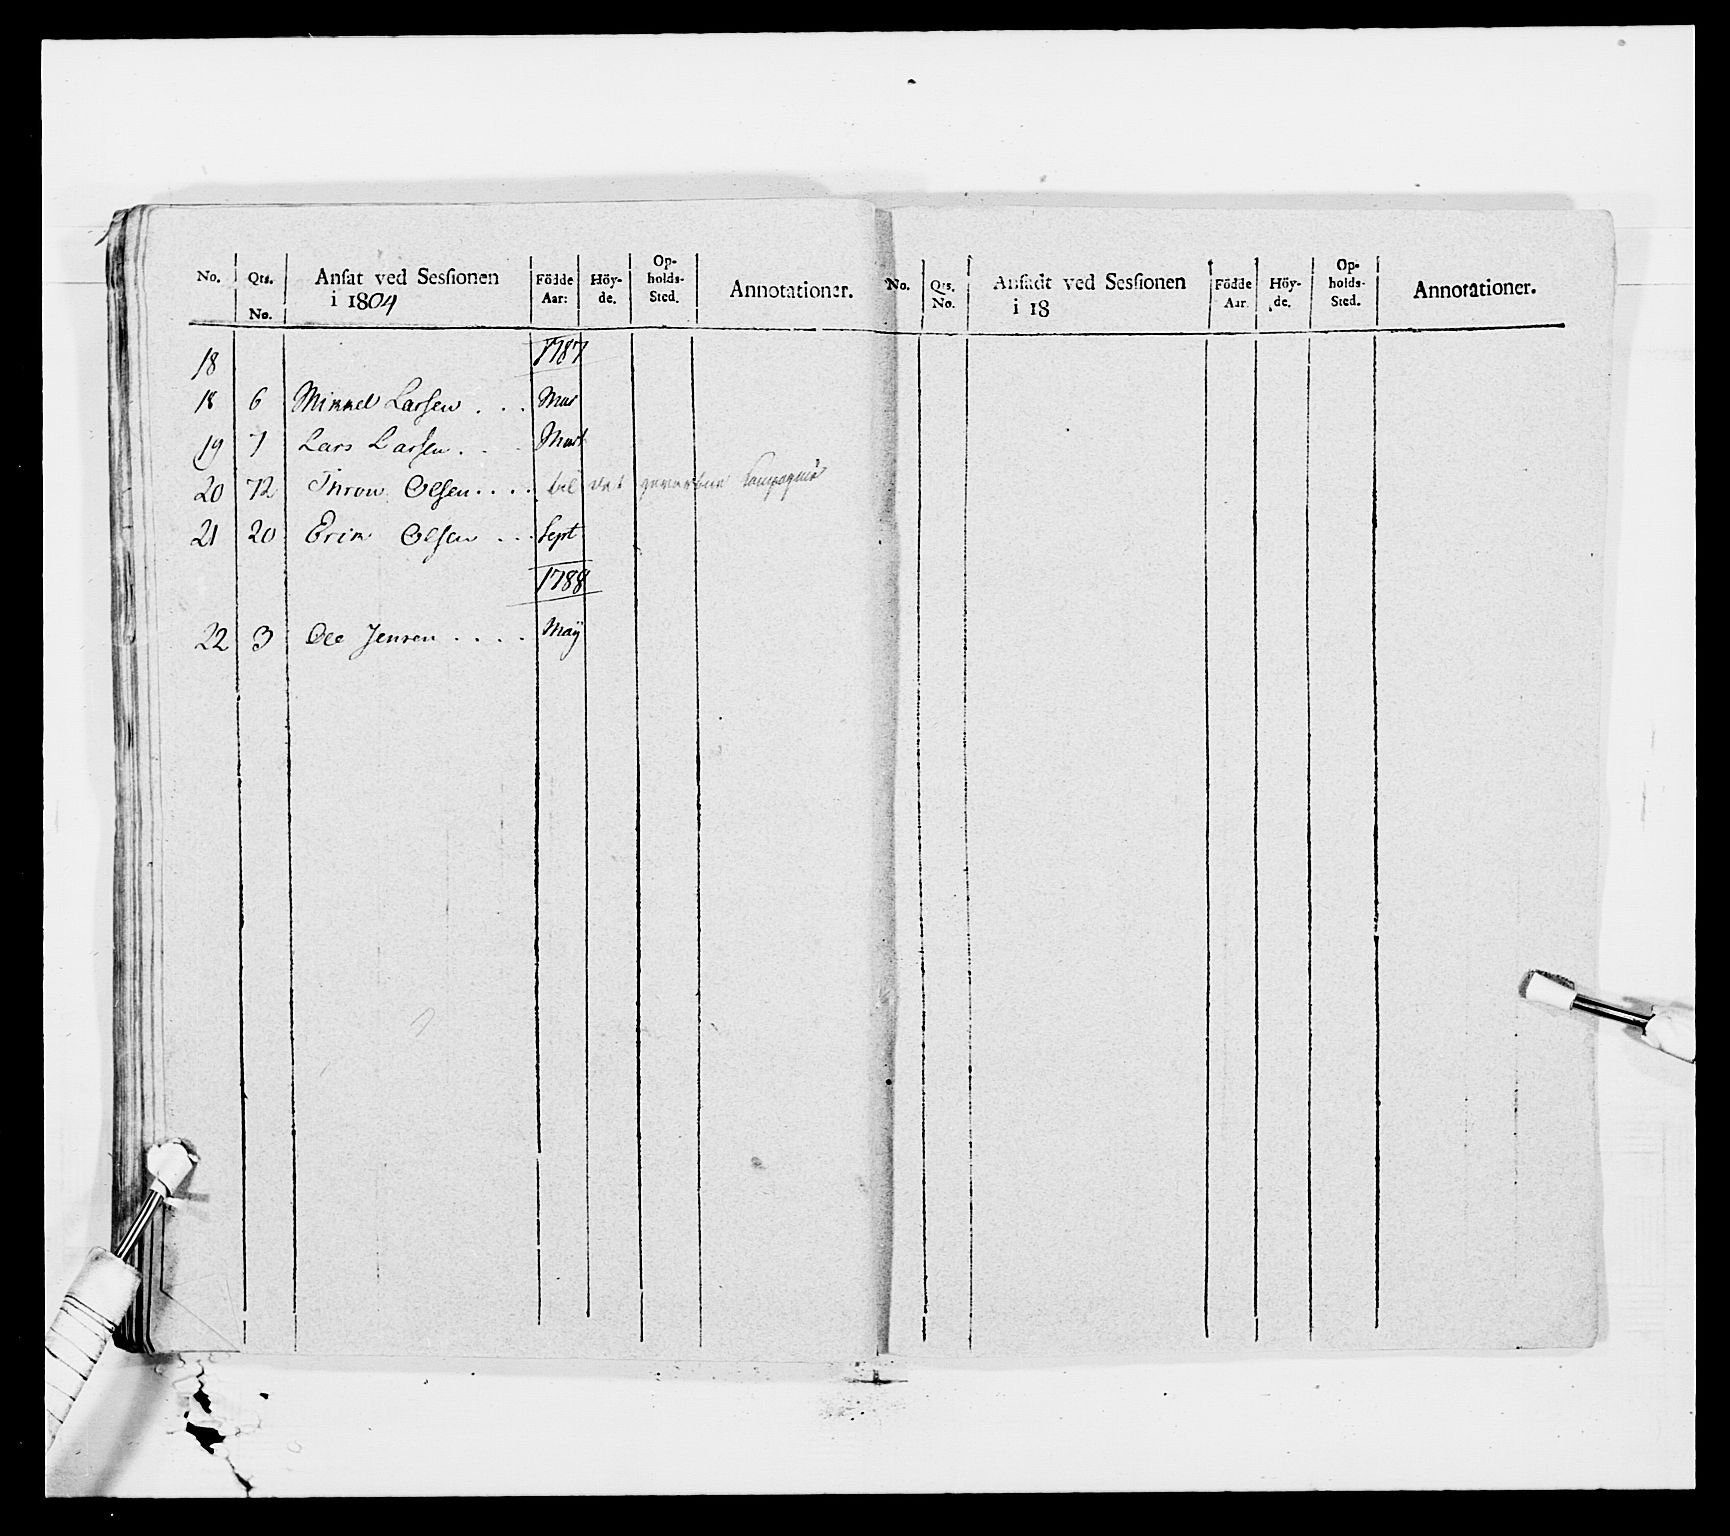 No. Qts. No. Ansat ved Sessionen i 1804 Födde Aar: Höy-de. Op-holds-Sted. Annotationer.
18 1787
18 6 Mikkel Larsen . . . Mar
19 7 Lars Larsen . . . Mart
20 72 Thron Olsen . . . . til det gevorbne Compagnie
21 20 Erik Olsen . . . Sept
1788
22 3 Ole Jensen . . . . Maÿ
No. Qts. No. Ansadt ved Sessionen i 18 Födde Aar. Höy-de. Op-holds-Sted. Annotationer.